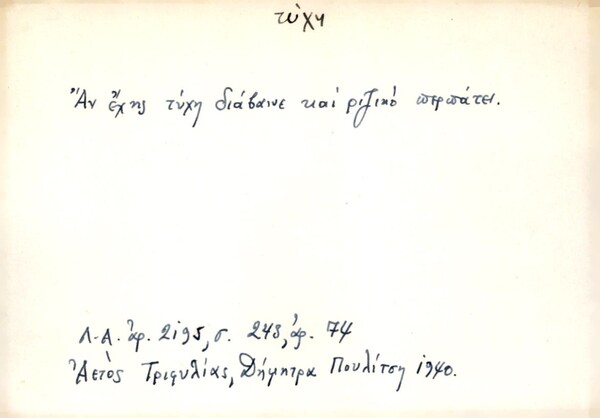 τύχη
Ἂν ἔχῃς τύχη διάβαινε καὶ ριζικὸ περπάτει.
Λ.Α. ἀρ. 2195, σ. 243, ἀρ. 74
Ἀετὸς Τριφυλίας, Δήμητρα Πουλίτση 1940.